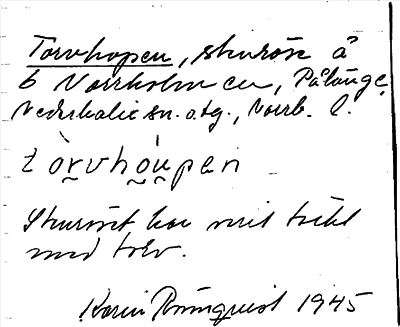 Torvhopen, skuröse å
6 Norrholmen, Pålänge,
Nederkalix sn. o. tg., Norrb. l.
tòrvhòupen
Skuröset har varit täckt
med torv.
Karin Rönnquist 1945